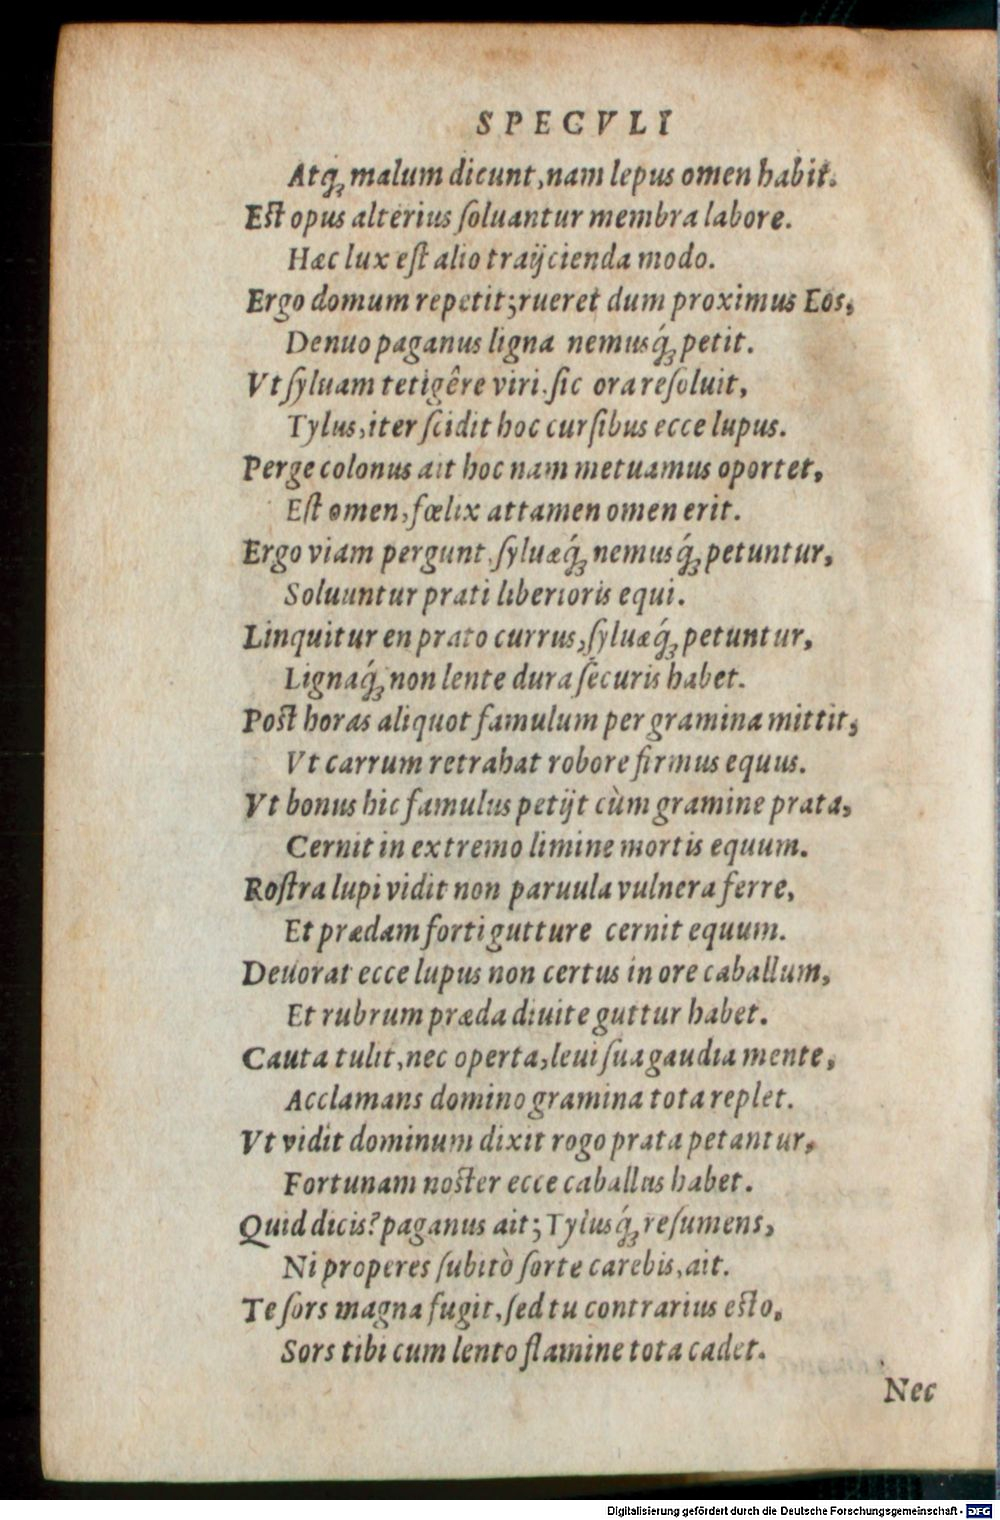 SPECVLI
Atq́ꝫ malum dicunt, nam lepus omen habit.
Est opus alterius ſoluantur membra labore.
Hæc lux eſt alio traijcienda modo.
Ergo domum repetit; rueret dum proximus Eos,
Denuo paganus ligna nemusq́ꝫ petit.
Vt ſyluam tetigêre viri. ſic ora reſoluit,
Tylus, iter ſcidit hoc curſibus ecce lupus.
Perge colonus ait hoc nam metuamus oportet,
Eſt omen, fœlix attamen omen erit.
Ergo viam pergunt. ſyluæq́ꝫ nemusq́ꝫ petuntur,
Soluuntur prati liberioris equi.
Linquitur en prato currus, ſyluæq́ꝫ petuntur,
Lignaq́ꝫ non lente dura ſecuris habet.
Post horas aliquot famulum per gramina mittit,
Vt carrum retrahat robore firmus equus.
Vt bonus hic famulus petijt cùm gramine prata,
Cernit in extremo limine mortis equum.
Roſtra lupi vidit non paruula vulnera ferre,
Et prædam forti gutture cernit equum.
Deuorat ecce lupus non certus in ore caballum,
Et rubrum præda diuite guttur habet.
Cauta tulit, nec operta, leui ſua gaudia mente,
Acclamans domino gramina tota replet.
Vt vidit dominum dixit rogo prata petantur,
Fortunam noster ecce caballus habet.
Quid dicis? paganus ait; Tylusq́ꝫ reſumens,
Ni properes ſubitò ſorte carebis, ait.
Te ſors magna fugit, ſed tu contrarius esto,
Sors tibi cum lento flamine tota cadet.
Nec
Digitalisierung gefördert durch die Deutsche Forschungsgemeinschaft - DFG